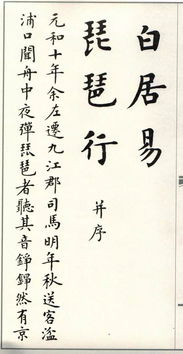 白居易
琵琶行 并序
元和十年余左遷九江郡司馬明年秋送客湓
浦口聞舟中夜彈琵琶者聽其音錚錚然有京